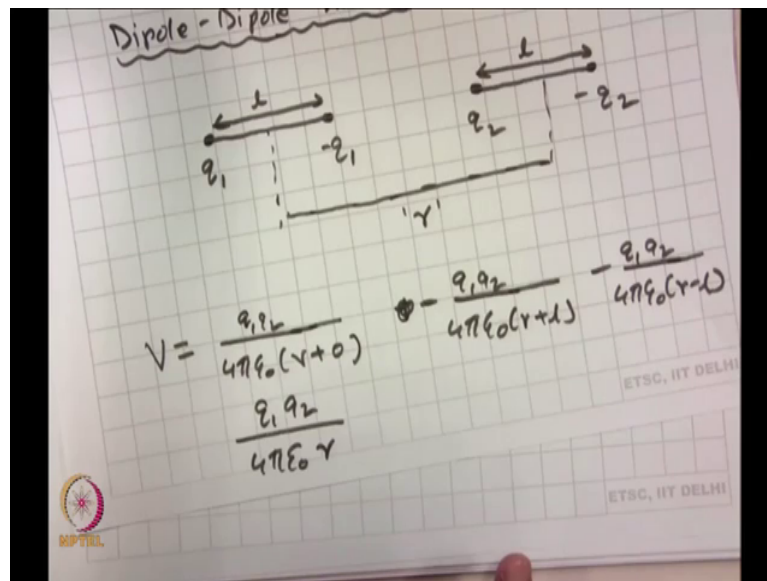 Dipole - Dipole
l
l
q₁
-q₁
q₂
-q₂
'r'
V = q₁q₂/4πε₀(r+0) - q₁q₂/4πε₀(r+l) - q₁q₂/4πε₀(r-l)
q₁q₂/4πε₀r
ETSC, IIT DELHI
ETSC, IIT DELHI
NPTEL